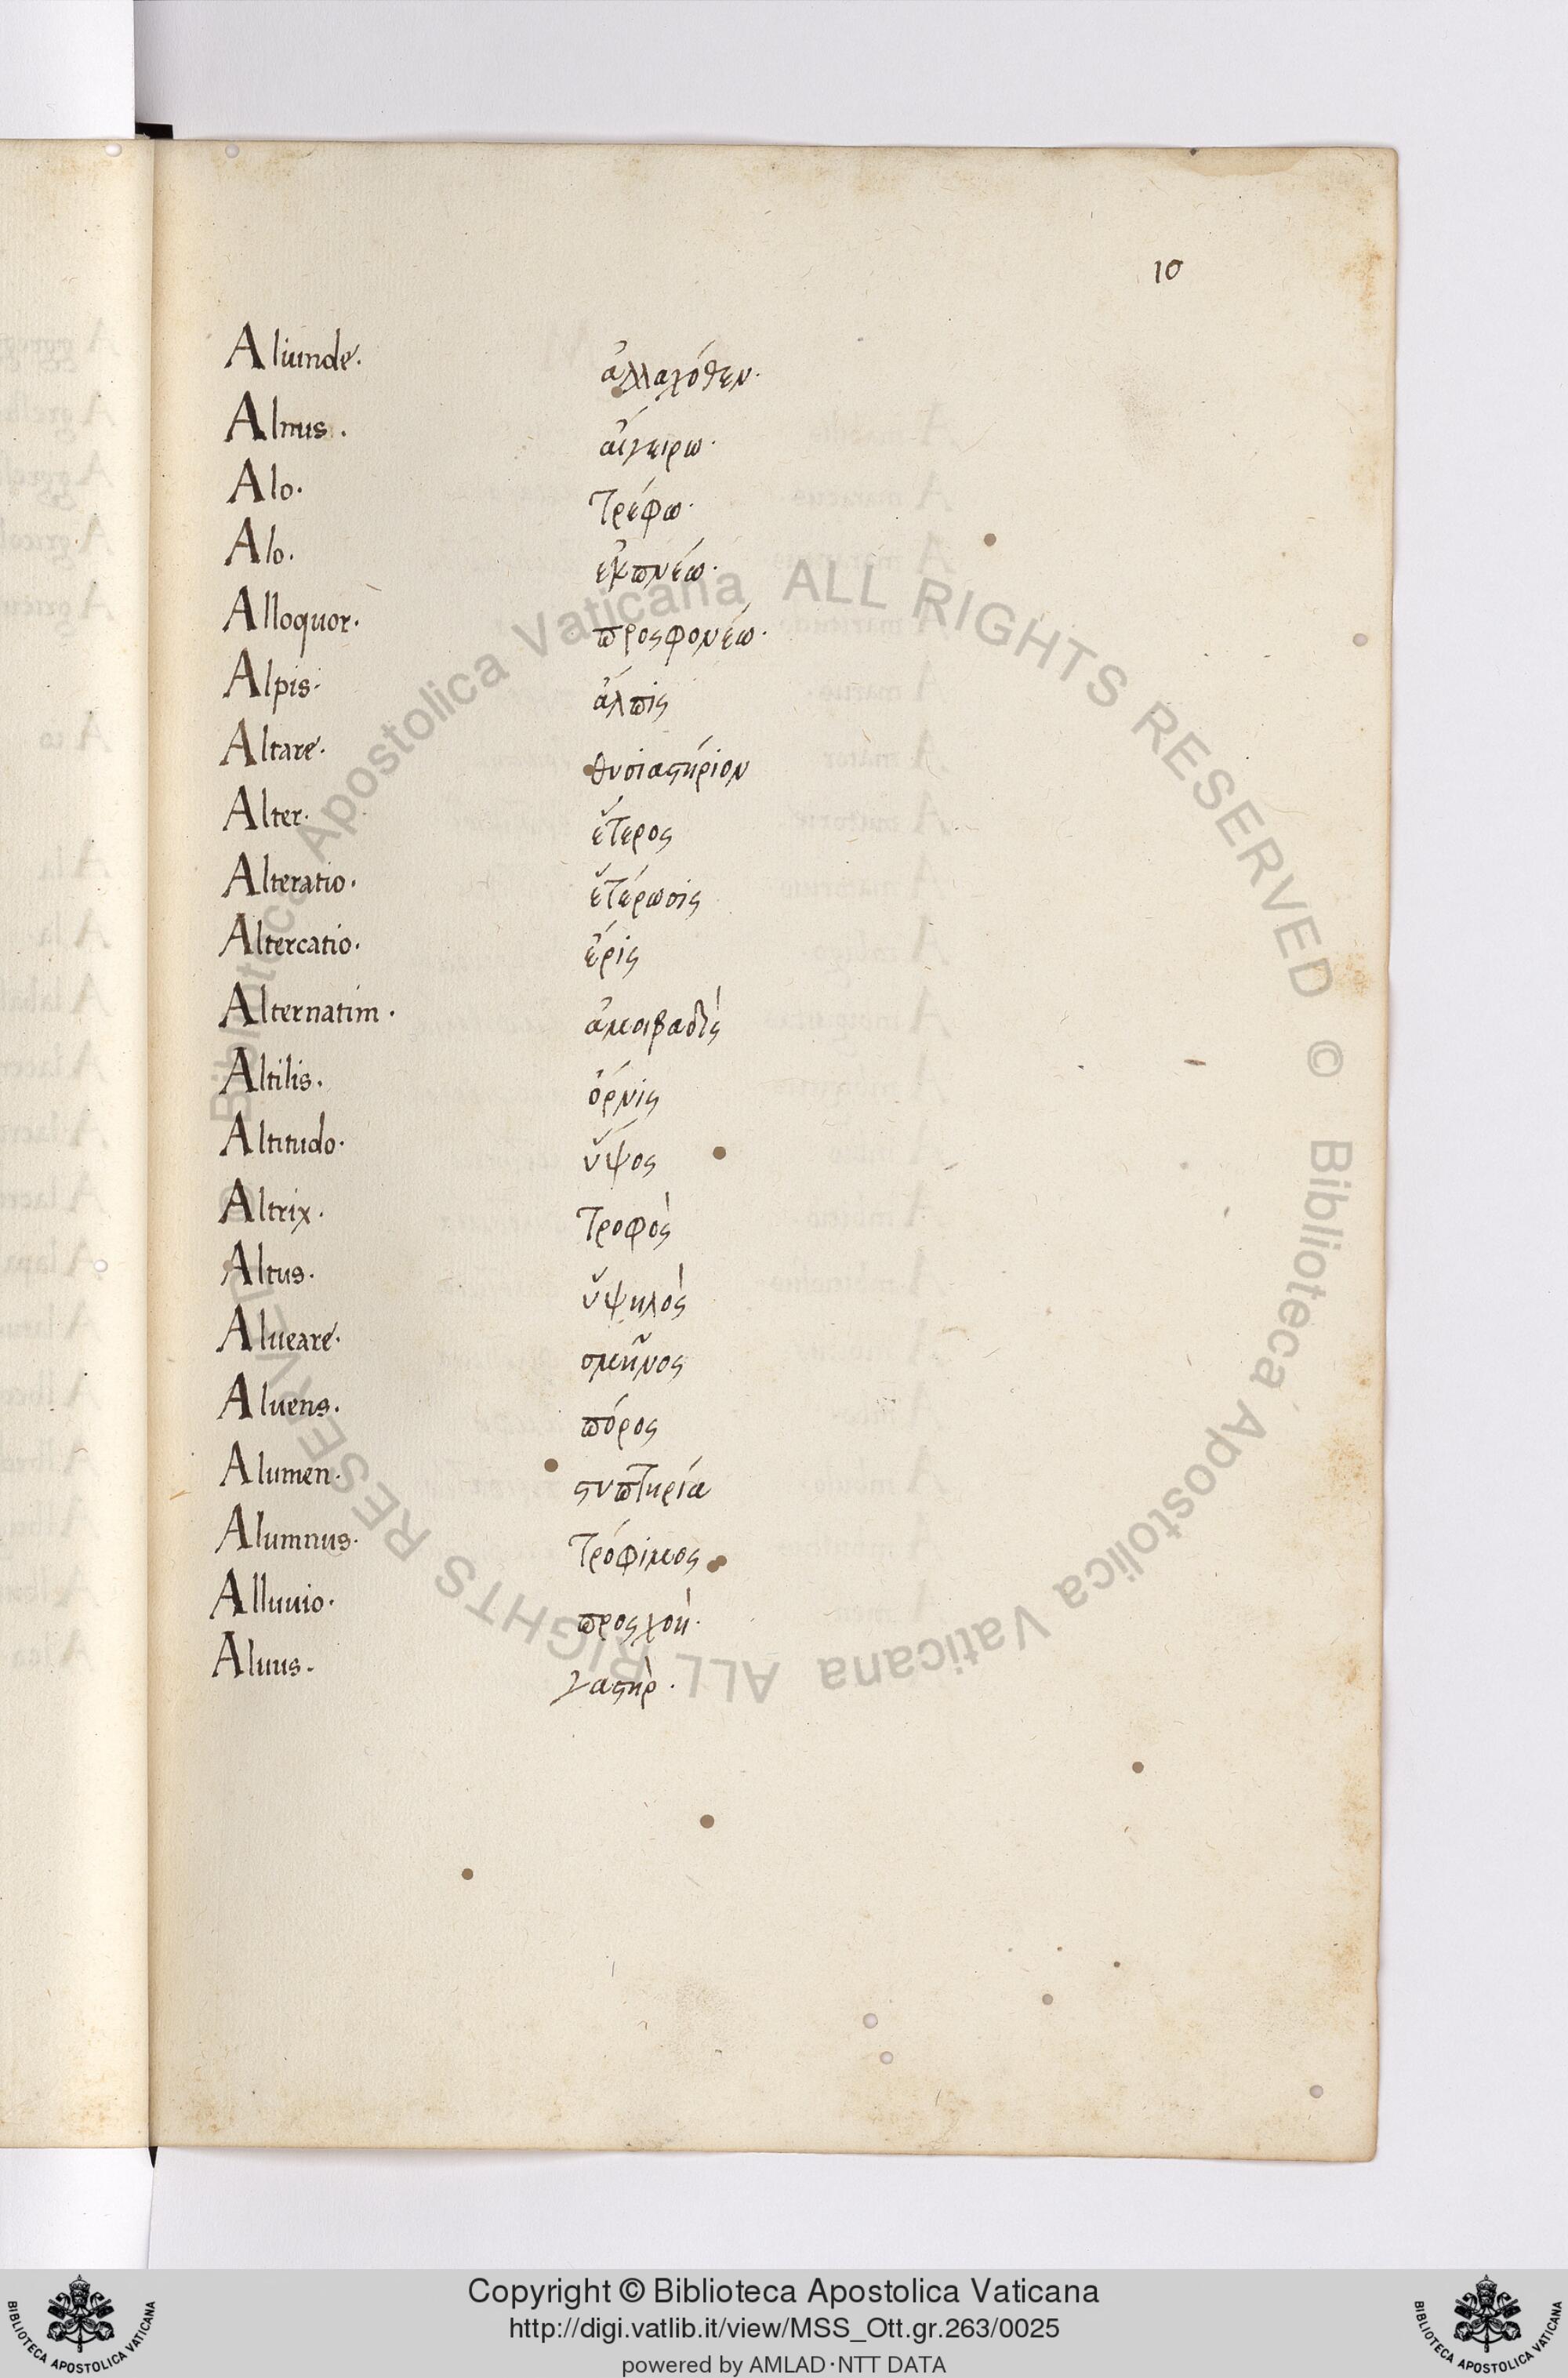 10
Aliunde. ἀλλαχόθεν.
Alnus. αἴγειρω.
Alo. τρέφω.
Alo. ἐκπνέω.
Alloquor. προσφονέω.
Alpis. ἄλπις
Altare. θυσιαστήριον
Alter. ἕτερος
Alteratio. ἑτέρωσις
Altercatio. ἔρις
Alternatim. ἀμοιβαδὶς
Altilis. ὄρνις
Altitudo. ὕψος
Altrix. τροφὸς
Altus. ὑψηλὸς
Alueare. σμῆνος
Aluens. πόρος
Alumen. στυπτηρία
Alumnus. τρόφιμος
Alluuio. προσχοὴ.
Aluus. γαστὴρ.
Copyright © Biblioteca Apostolica Vaticana
http://digi.vatlib.it/view/MSS_Ott.gr.263/0025
powered by AMLAD·NTT DATA
BIBLIOTECA APOSTOLICA VATICANA
BIBLIOTECA APOSTOLICA VATICANA
© Biblioteca Apostolica Vaticana ALL RIGHTS RESERVED © Biblioteca Apostolica Vaticana ALL RIGHTS RESERVED